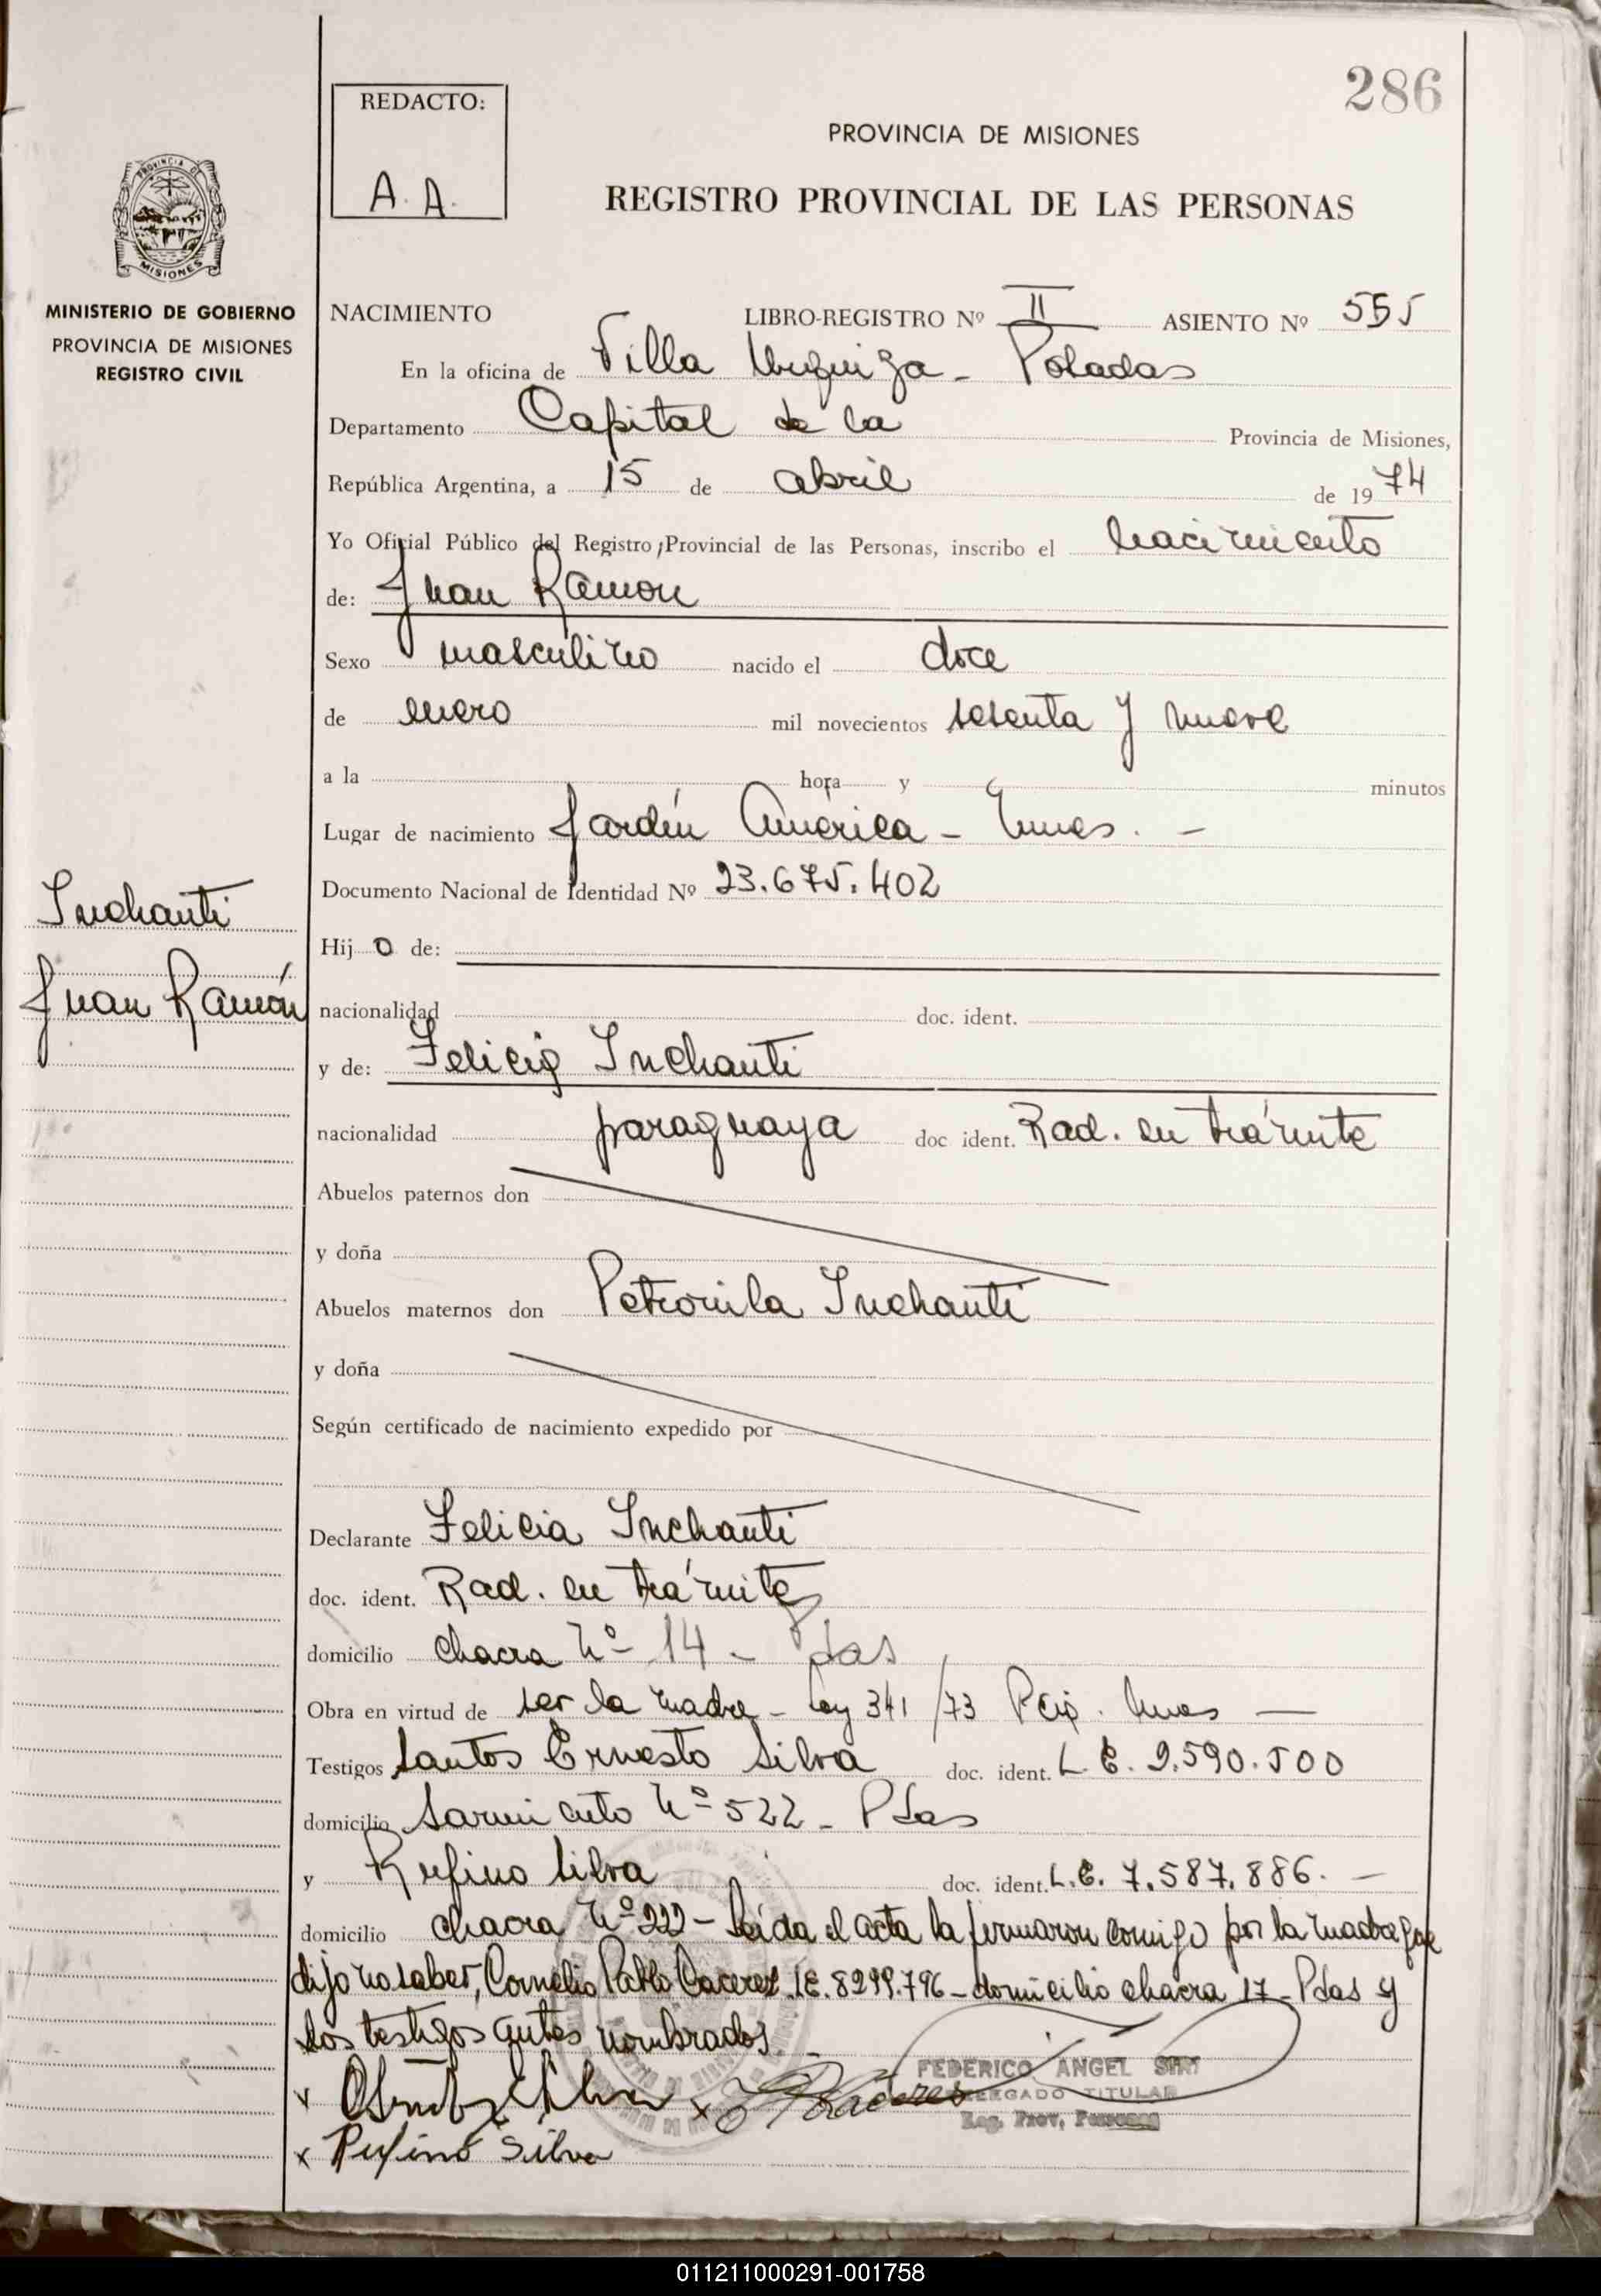 286
REDACTO:
A. A.
PROVINCIA DE MISIONES
REGISTRO PROVINCIAL DE LAS PERSONAS
PROVINCIA DE
MISIONES
MINISTERIO DE GOBIERNO
PROVINCIA DE MISIONES
REGISTRO CIVIL
NACIMIENTO LIBRO-REGISTRO Nº II ASIENTO Nº 555
En la oficina de Villa Urquiza - Posadas
Departamento Capital de la Provincia de Misiones,
República Argentina, a 15 de abril de 1974
Yo Oficial Público del Registro Provincial de las Personas, inscribo el nacimiento
de: Juan Ramon
Sexo masculino nacido el doce
de enero mil novecientos sesenta y nueve
a la hora y minutos
Lugar de nacimiento Jardín América - Mnes. -
Documento Nacional de Identidad Nº 23.675.402
Hijo de:
Inchauti
Juan Ramón
nacionalidad doc. ident.
y de: Felicia Inchauti
nacionalidad paraguaya doc ident. Rad. en trámite
Abuelos paternos don
y doña
Abuelos maternos don Petronila Inchauti
y doña
Según certificado de nacimiento expedido por
Declarante Felicia Inchauti
doc. ident. Rad. en trámite
domicilio chacra Nº 14 - Pdas
Obra en virtud de ser la madre - Ley 341/73 Pcia. Mnes —
Testigos Santos Ernesto Silva doc. ident. L.E. 2.590.500
domicilio Sarmiento Nº 522 - Pdas
y Rufino Silva doc. ident. L.E. 7.587.886. —
domicilio chacra Nº 222 - Leída el acta la firmaron comigo por la madre que
dijo no saber, Cornelio Pablo Caceres LE. 8299.796 - domicilio chacra 17 - Pdas y
los testigos antes nombrados. -
FEDERICO ANGEL
DELEGADO TITULAR
Reg. Prov. Personas
x x Caceres
x Rufino Silva
011211000291-001758